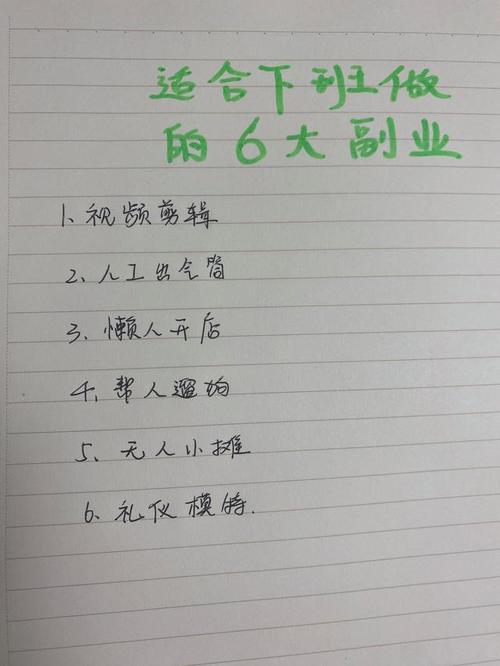 适合下班做
的6大副业
1、视频剪辑
2、人工出气筒
3、懒人开店
4、帮人遛狗
5、无人小摊
6、礼仪模特.